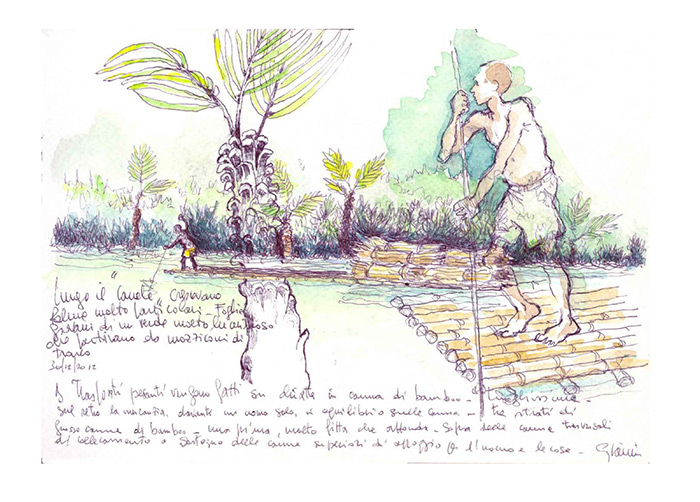 Lungo il "canale" crescevano
palme molto particolari - Foglie
di un verde misto
che partivano da mozziconi di
tronco
30/12/2012
I Trasporti pesanti vengono fatti su in canna di bamboo -
sul retro la mercanzia, davanti un uomo solo, in equilibrio sulle canne - tre strati di
grosse canne di bamboo - una prima, molto fitta che affonda - sopra delle canne trasversali
di collegamento e sostegno delle canne superiori di appoggio x l'uomo e le cose - Gianni